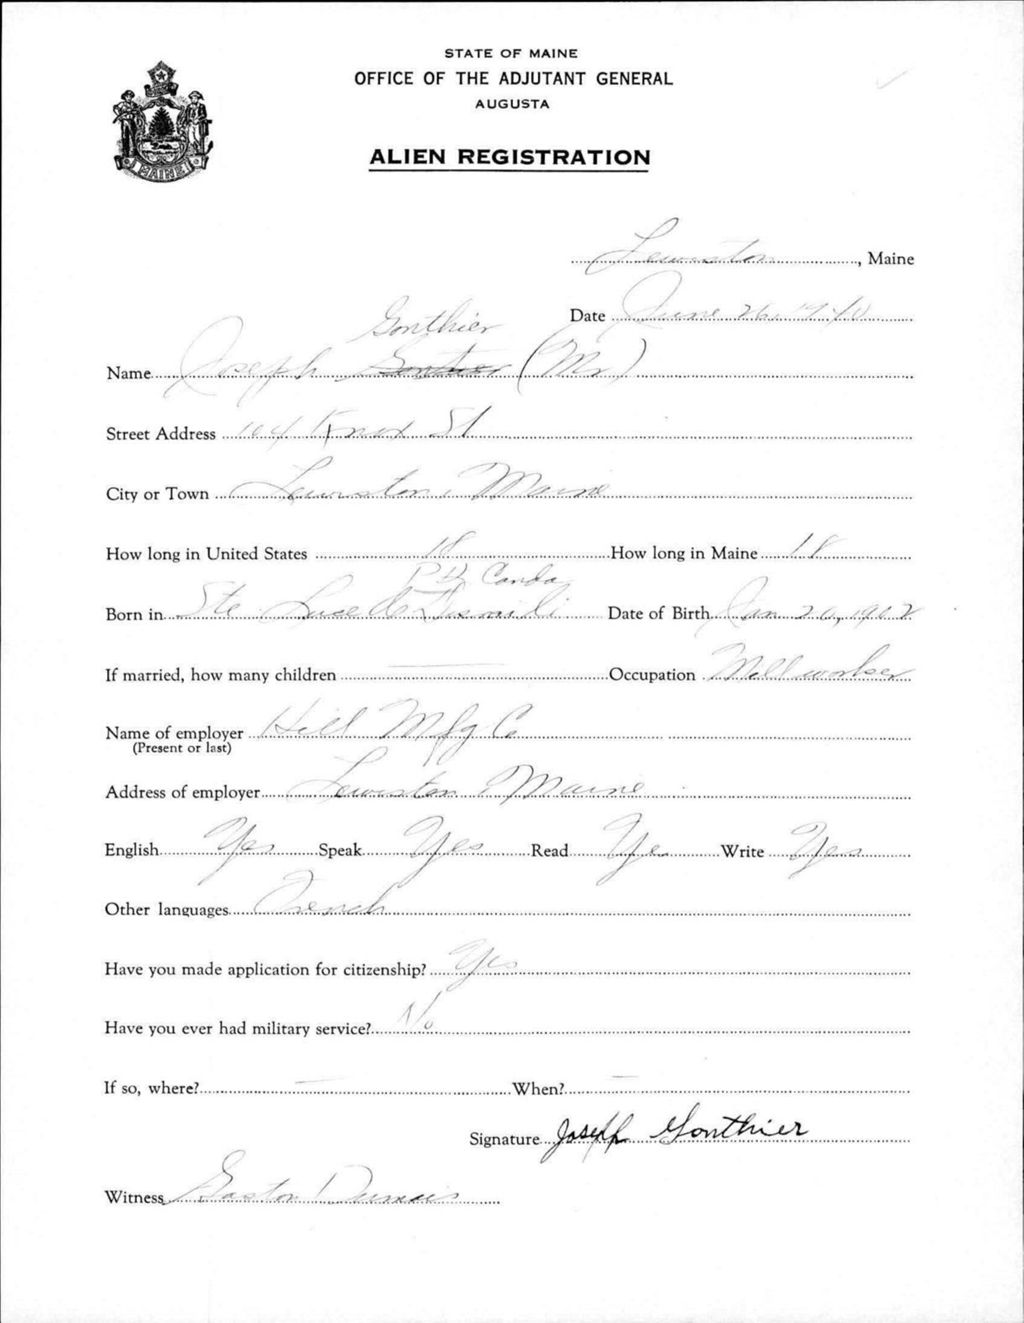 STATE OF MAINE
OFFICE OF THE ADJUTANT GENERAL
AUGUSTA
MAINE
ALIEN REGISTRATION
Lewiston, Maine
Date June 26, 1940
Gonthier
Name Joseph (Mr)
Street Address 104 Knox St
City or Town Lewiston, Maine
How long in United States 18 How long in Maine 18
P Q Canda
Born in Ste Luce de Date of Birth Jan 20, 1902
If married, how many children — Occupation Mill worker
Name of employer Hill Mfg Co
(Present or last)
Address of employer Lewiston, Maine
English Yes Speak Yes Read Yes Write Yes
Other languages French
Have you made application for citizenship? Yes
Have you ever had military service? No
If so, where? — When? —
Signature Joseph Gonthier
Witness Gaston Dumais